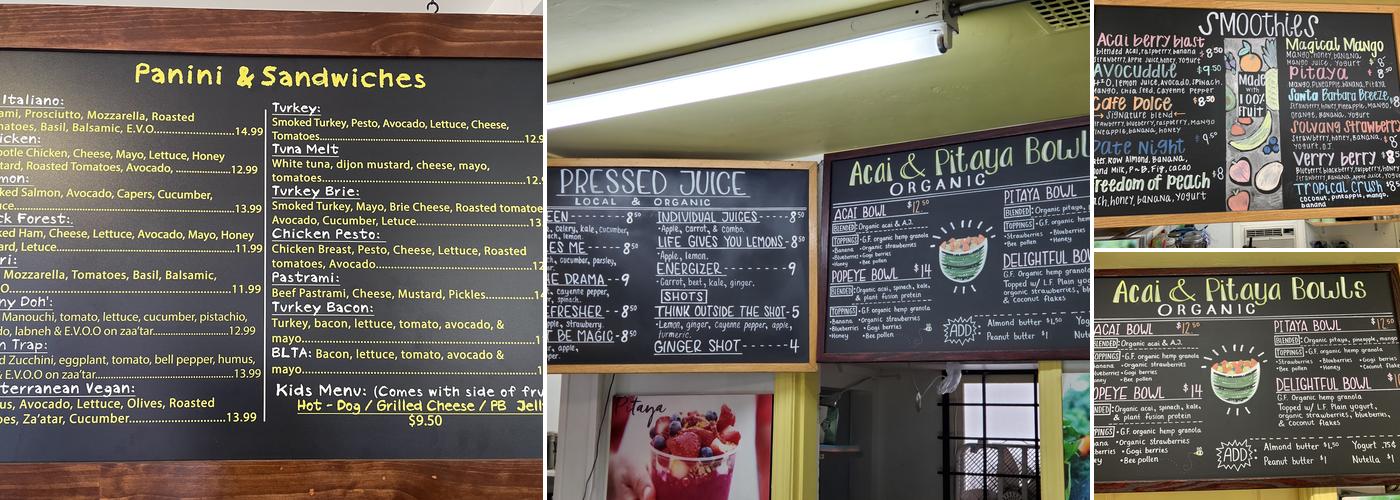 Panini & Sandwiches
Italiano:
Prosciutto, Mozzarella, Roasted
Basil, Balsamic, E.V.O........14.99
Chicken, Cheese, Mayo, Lettuce, Honey
Roasted Tomatoes, Avocado, ........12.99
Salmon, Avocado, Capers, Cucumber,
........13.99
Forest:
Ham, Cheese, Lettuce, Avocado, Mayo, Honey
Letuce........11.99
Mozzarella, Tomatoes, Basil, Balsamic,
........11.99
Doh':
Manouchi, tomato, lettuce, cucumber, pistachio,
labneh & E.V.O.O on zaa'tar........12.99
Trap:
Zucchini, eggplant, tomato, bell pepper, humus,
& E.V.O.O on zaa'tar........13.99
Vegan:
Avocado, Lettuce, Olives, Roasted
Za'atar, Cucumber........13.99
Turkey:
Smoked Turkey, Pesto, Avocado, Lettuce, Cheese,
Tomatoes........
Tuna Melt
White tuna, dijon mustard, cheese, mayo,
tomatoes........
Turkey Brie:
Smoked Turkey, Mayo, Brie Cheese, Roasted tomatoe
Avocado, Cucumber, Letuce........
Chicken Pesto:
Chicken Breast, Pesto, Cheese, Lettuce, Roasted
tomatoes, Avocado........
Pastrami:
Beef Pastrami, Cheese, Mustard, Pickles........
Turkey Bacon:
Turkey, bacon, lettuce, tomato, avocado, &
mayo........
BLTA: Bacon, lettuce, tomato, avocado &
mayo........
Kids Menu: (Comes with side of
Hot - Dog / Grilled Cheese / PB
$9.50
PRESSED JUICE
LOCAL & ORGANIC
8.50
celery, kale, cucumber,
lemon.
ME 8.50
cucumber, parsley,
DRAMA 9
cayenne pepper,
spinach.
8.50
strawberry.
BE MAGIC 8.50
apple,
INDIVIDUAL JUICES 8.50
•Apple, carrot, & combo.
LIFE GIVES YOU LEMONS 8.50
•Apple, lemon.
ENERGIZER 9
•Carrot, beet, kale, ginger.
SHOTS
THINK OUTSIDE THE SHOT 5
•Lemon, ginger, cayenne pepper, apple,
turmeric.
GINGER SHOT 4
Pitaya
Acai & Pitaya Bowl
ORGANIC
ACAI BOWL $12.50
BLENDED: Organic acai & A.J.
TOPPINGS: •G.F. organic hemp granola
•Bananas •Organic strawberries
•Blueberries •Gogi berries
•Honey •Bee pollen
POPEYE BOWL $14
BLENDED: Organic acai, spinach, kale,
& plant fusion protein
TOPPINGS: •G.F. organic hemp granola
•Bananas •Organic strawberries
•Blueberries •Gogi berries
•Honey •Bee pollen
PITAYA BOWL
BLENDED: Organic pitaya,
TOPPINGS: •G.F. organic hemp
•Strawberries
•Blueberries
•Bee pollen
DELIGHTFUL BO
G.F. Organic hemp granola
Topped w/ L.F. Plain
organic strawberries,
& Coconut flakes
ADD: Almond butter $1.50
Peanut butter $1
SMOOTHIES
Acai berry blast $8.50
blended Acai, raspberry, banana
Avocuddle $9.50
Lemon Juice, Avocado, spinach,
Mango, chia seed, Cayenne Pepper
Cafe Dolce $8.50
→ Signature blend ←
strawberry, blueberry, raspberry, mango
pineapple, banana, honey
Date Night 9.50
Raw Almond, Banana,
Milk, P~B, Fig, cacao
Freedom of Peach $8
honey, banana, yogurt
Made with 100% fruit
Magical Mango
Mango, honey, banana,
Mango Juice, Yogurt $8
Pitaya $8.50
Mango, Pineapple, banana, Pitaya
Santa Barbara Breeze
Strawberry, honey, pineapple, Mango,
Orange, banana, Yogurt
Solvang Strawberry
Strawberry, honey, banana,
Yogurt, O.J.
Verry berry
Strawberry, banana, Apple Juice,
Tropical Crush
Coconut, pineapple, mango,
banana
Acai & Pitaya Bowls
ORGANIC
ACAI BOWL $12.50
BLENDED: Organic acai & A.J.
TOPPINGS: •G.F. organic hemp granola
•Organic strawberries
•Gogi berries
•Bee pollen
POPEYE BOWL $14
Organic acai, spinach, kale,
& plant fusion protein
•G.F. organic hemp granola
•Organic strawberries
•Gogi berries
•Bee pollen
PITAYA BOWL $12.50
BLENDED: Organic pitaya, pineapple, mango
TOPPINGS: •G.F. organic hemp granola
•Strawberries •Bananas
•Blueberries •Gogi berries
•Bee pollen •Honey
DELIGHTFUL BOWL
G.F. Organic hemp granola
Topped w/ L.F. Plain yogurt,
organic strawberries, blueberries,
& Coconut flakes
ADD: Almond butter $1.50 Yogurt .75¢
Peanut butter $1 Nutella $1